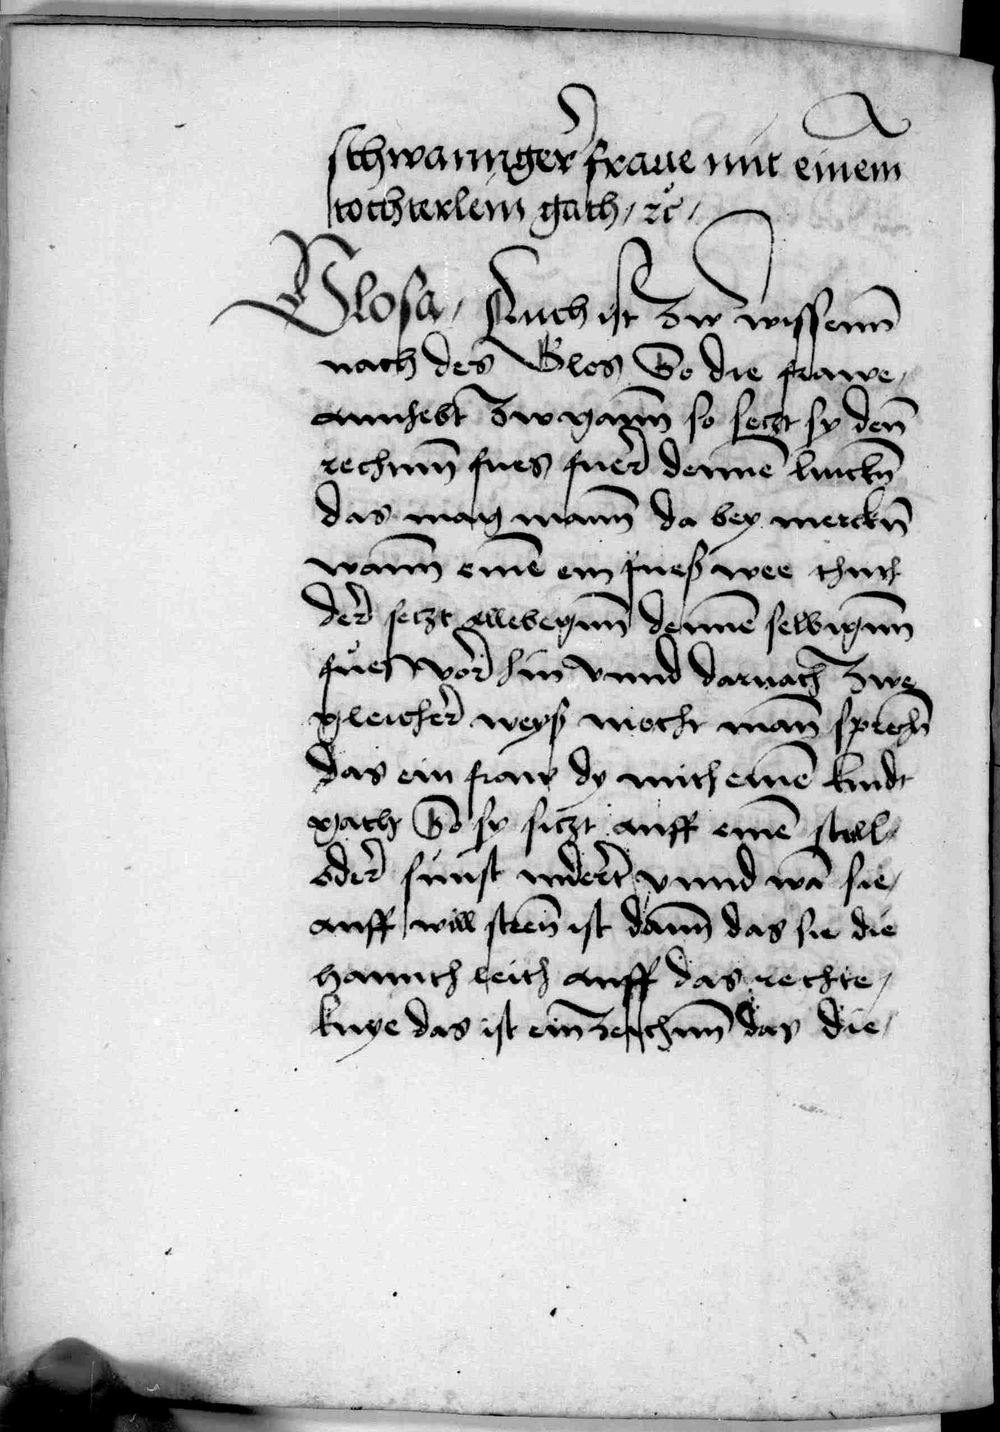 schwannger frawe mit einem
tochterlein gath / ꝛc /
Glosa / Auch ist zw wissenn̄
nach des Glos So die frawe /
annhebt zw gann̄ so seczt sy den̄
rechnn̄ fues fuer dennē linckn̄
das mag mann̄ da bey merckn̄
wann̄ einē ein fueß wee thuth
der seczt allebegnn̄ dennē selbignn̄
fues vor hin vnnd darnach zwe
gleicher weyß mocht man̄ sprechn̄
das ein fraw dy mith einē kindt
gath So sy siczt auff einē stull
oder sunst ndert vnnd wā sie /
auff will sten̄ ist dann̄ das sie die
hannth leith auff das rechte /
knye das ist ein zeichnn̄ das die /